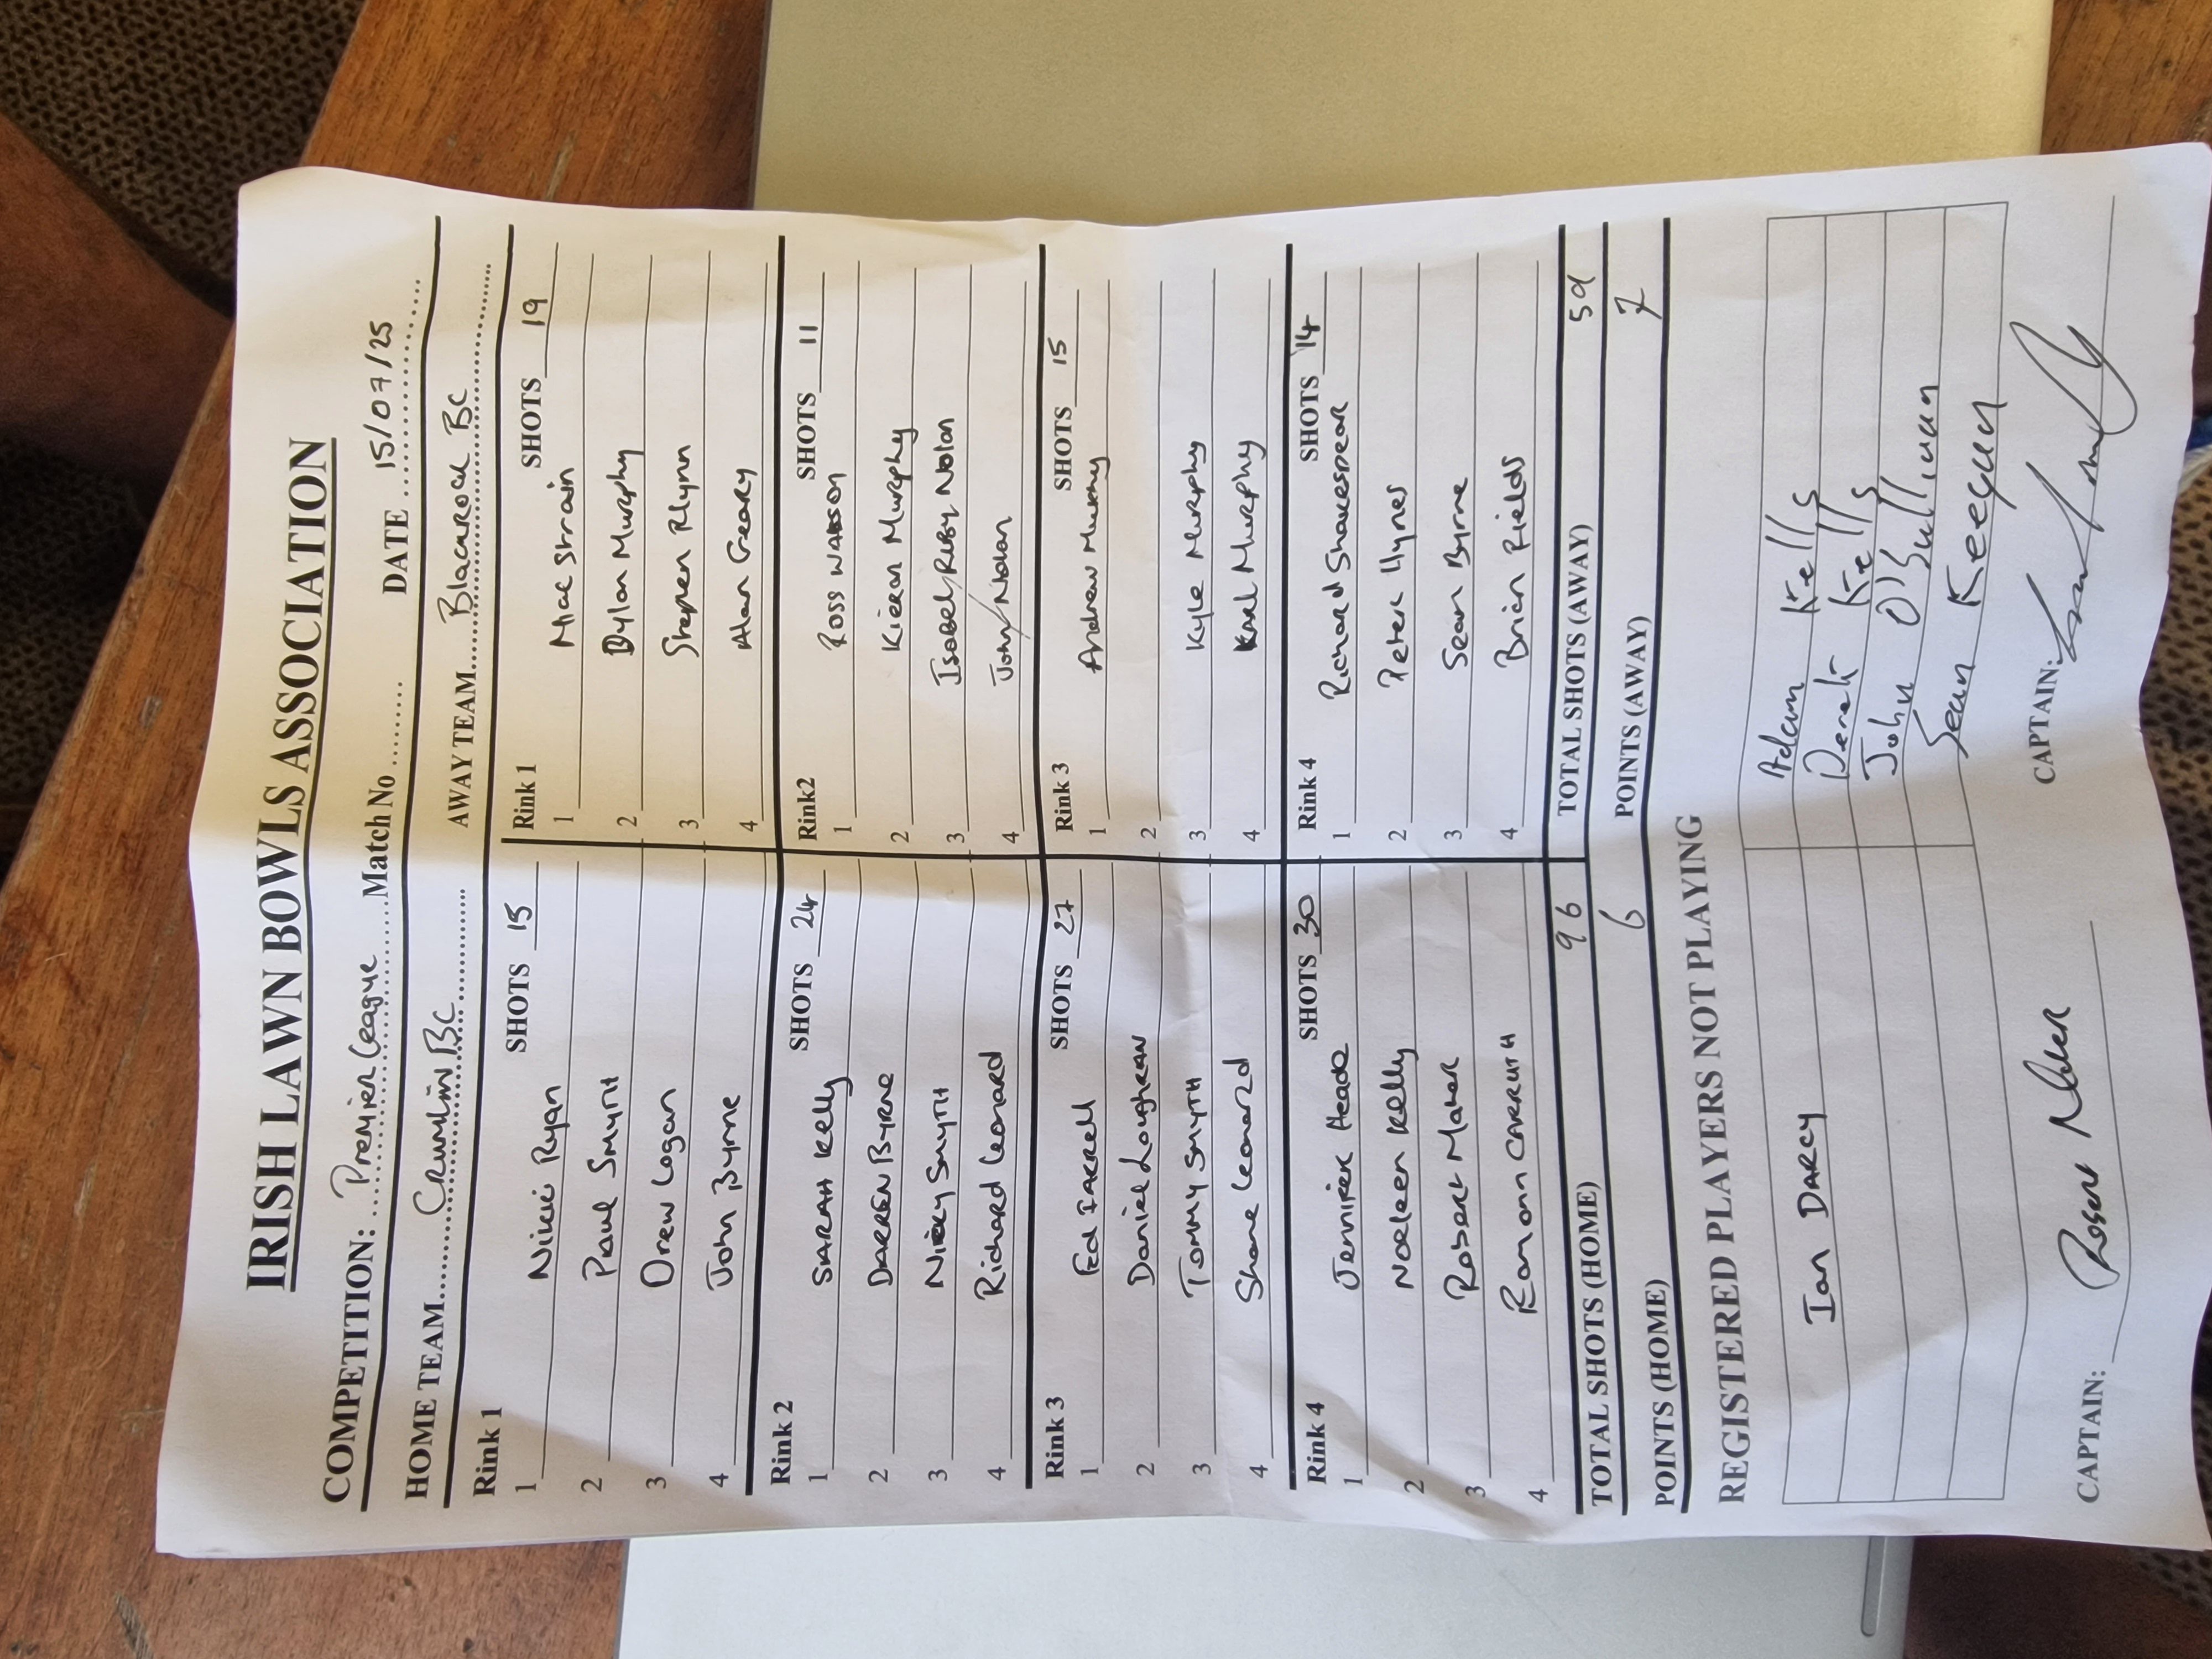 IRISH LAWN BOWLS ASSOCIATION
COMPETITION: Premier League Match No DATE 15/07/25
HOME TEAM Crumlin BC AWAY TEAM Blackrock BC
Rink 1 SHOTS 15 Rink 1 SHOTS 19
1 Nikki Ryan 1 Mac Strain
2 Paul Smyth 2 Dylan Murphy
3 Drew Logan 3 Stephen Flynn
4 John Byrne 4 Alan Geary
Rink 2 SHOTS 24 Rink2 SHOTS 11
1 SARAH Kelly 1 Ross Watson
2 DARREN BYRNE 2 Kieran Murphy
3 Nicky SMYTH 3 Isobel/Ruby Nolan
4 Richard Leonard 4 John Nolan
Rink 3 SHOTS 27 Rink 3 SHOTS 15
1 Ed FARRELL 1 Andrew Murphy
2 Daniel Loughran 2
3 TOMMY SMYTH 3 Kyle Murphy
4 Shane Leonard 4 Karl Murphy
Rink 4 SHOTS 30 Rink 4 SHOTS 14
1 Jennifer Heade 1 Richard Shakespear
2 Noeleen Kelly 2 Peter Hynes
3 Robert Maher 3 Sean Byrne
4 Eamonn CARRUTH 4 Brian Fields
TOTAL SHOTS (HOME) 96 TOTAL SHOTS (AWAY) 59
POINTS (HOME) 6 POINTS (AWAY) 7
REGISTERED PLAYERS NOT PLAYING
Ian DARCY Adam Kells
Derek Kells
John O'Sullivan
Sean Keegan
CAPTAIN: CAPTAIN: